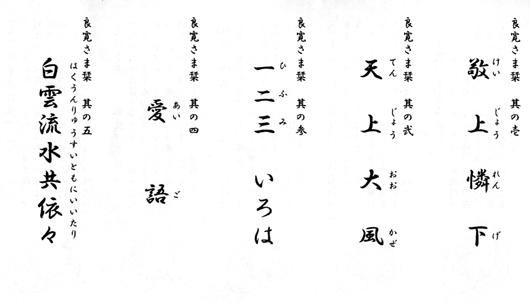 良寛さま栞 其の壱
敬上憐下
けいじょうれんげ
良寛さま栞 其の弐
天上大風
てんじょうおおかぜ
良寛さま栞 其の参
一二三いろは
ひふみ
良寛さま栞 其の四
愛語
あいご
良寛さま栞 其の五
白雲流水共依々
はくうんりゅうすいともにいいたり